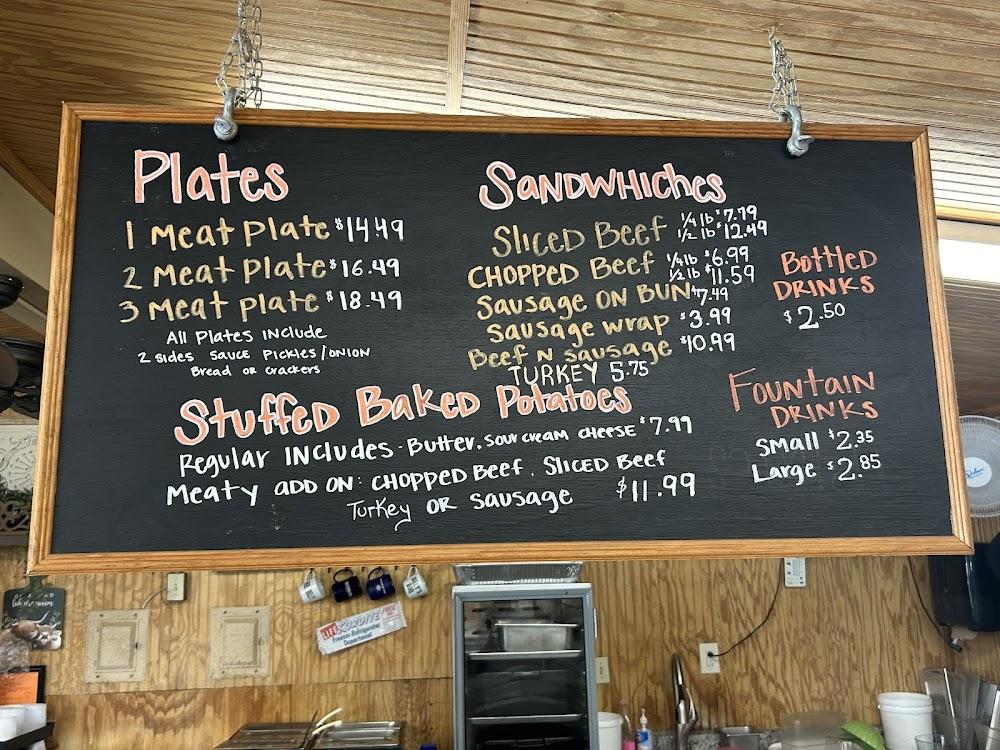 Plates
1 Meat Plate $14.49
2 Meat Plate $16.49
3 Meat Plate $18.49
All Plates Include
2 sides sauce Pickles/onion
Bread or crackers
Sandwhiches
Sliced Beef 1/4 lb $7.79
1/2 lb $12.49
Chopped Beef 1/4 lb $6.99
1/2 lb $11.59
Sausage on Bun $7.49
Sausage wrap $3.99
Beef N Sausage $10.99
TURKEY 5.75
Bottled
Drinks
$2.50
Stuffed Baked Potatoes
Regular Includes - Butter, sour cream cheese $7.99
Meaty add on: chopped Beef, Sliced Beef
Turkey or sausage $11.99
Fountain
Drinks
Small $2.35
Large $2.85
LIFE CORDITE FREE
Freezer-Refrigerator
Department